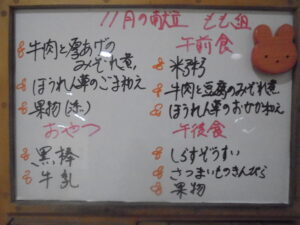 11月の献立 もも組
牛肉と厚あげの
みぞれ煮
ほうれん草のごま和え
果物(赤)
おやつ
黒棒
牛乳
午前食
米粥
牛肉と豆腐のみぞれ煮
ほうれん草のおかか和え
午後食
しらすぞうすい
さつまいもきんとん
果物